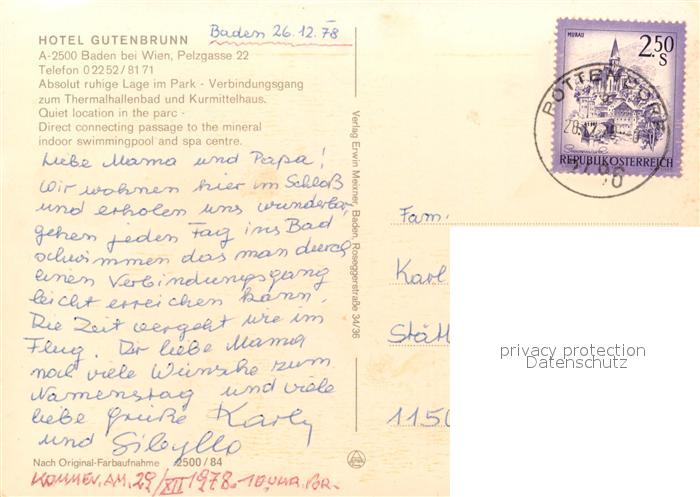 HOTEL GUTENBRUNN
Baden 26.12.78
A-2500 Baden bei Wien, Pelzgasse 22
Telefon 0 22 52 / 81 71
Absolut ruhige Lage im Park - Verbindungsgang
zum Thermalhallenbad und Kurmittelhaus.
Quiet location in the parc -
Direct connecting passage to the mineral
indoor swimmingpool and spa centre.
Liebe Mama und Papa!
Wir wohnen hier im Schloß
und erholen uns wunderbar,
gehen jeden Tag ins Bad
schwimmen das man durch
einen Verbindungsgang
leicht erreichen kann.
Die Zeit vergeht wie im
Flug. Dir liebe Mama
noch viele Wünsche zum
Namenstag und viele
liebe Grüße Karly
und Sibylle
Nach Original-Farbaufnahme 2500/84
KOMMEN. AM. 29/XII 1978. 10 UHR.
Verlag Erwin Meixner, Baden, Roseggerstraße 34/36
MURAU
2.50
S
REPUBLIK ÖSTERREICH
POTTENDORF
Fam.
Karl
Stätt
1150
privacy protection
Datenschutz